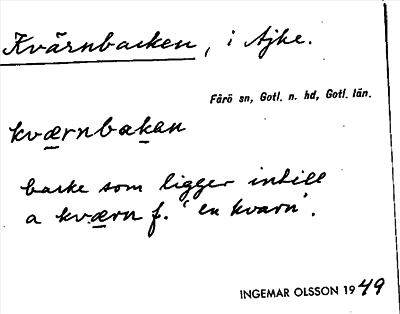 Kvärnbacken, i Ajke.
Fårö sn, Gotl. n. hd, Gotl. län.
kværnbakan
backe som ligger intill
a kværn f. 'en kvarn'.
INGEMAR OLSSON 1949